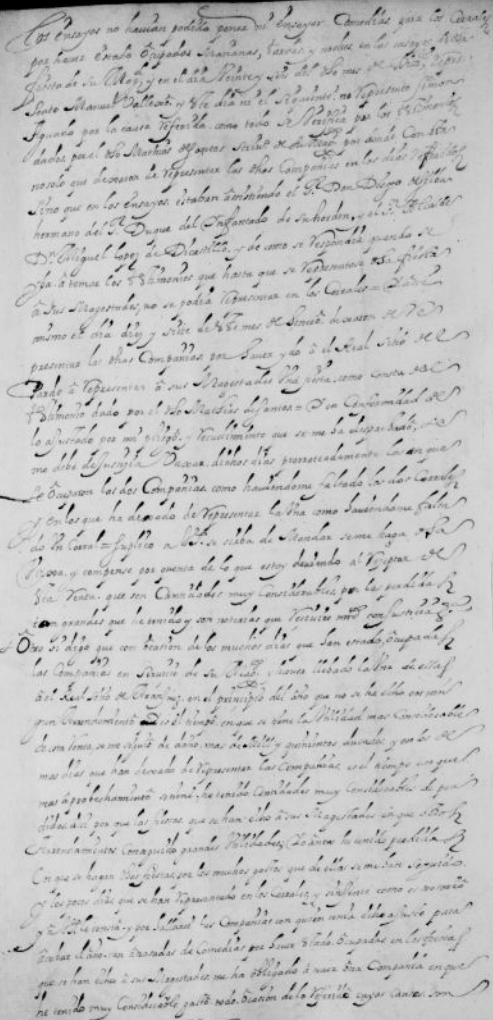 los ensayos no havian podido poner ni ensayar Comedias para los Corrales
por haver estado ocupados mañanas, tardes, y noches en los ensayos de la
fiesta de su Magd, y en el dia Veinte y seis del dho mes de no repre-
sento Manuel Vallejo, y este dia ni el siguiente, no Represento Simon
Aguado por la causa referida, como todo se Verifica por los testimonios
dados por el dho Mathias de Santos
no solo que dexaron de Representar las dhas Compañias en los dias referidos
Sino que en los Ensayos estaban asistiendo el Sr Don Diego de Silva
hermano del Sr Duque del Infantado de su horden, y el Sr Alcalde
Dn Miguel Lopez de Dicastillo, y de como se Respondia quando se
yba a tomar los testimonios que hasta que se Representase la fiesta
a Sus Magestades, no se podia Representar en los Corrales =
mismo el dia diez y siete de este mes de Henero dexaron de Re
presentar las dhas Compañias por haver ydo a el Real Sitio de el
Pardo a Representar a sus Magestades Una fiesta, como consta de el
testimonio dado por el dho Mathias de Santos = Y en Conformidad de
lo ajustado por mi pliego, y Recudimiento que se me ha despachado, se
me debe descontar y baxar dichos dias prorrateadamente los en que
se ocuparon las dos Compañias, como haviendome faltado la dos Corrales
y en los que ha dexado de Representar la Una como haviendome falta
do Un Corral = Suplico a se sirba de Mandar se me haga
y compense por quenta de lo que estoy debiendo al
Renta, que son Cantidades muy Considerables, por las perdidas
tan grandes que he tenido y son notorias que Reciviré mrd con Justicia
Otro si digo que con ocasion de los muchos dias que han estado ocupadas
las Compañias en servicio de su Magd, y haver llebado la Una de ellas
a el Real Sitio de Aranjuez, en el principio del año que no se ha dho en nin
gun Arrendamiento que es el tiempo, en que se tiene la Utilidad mas Considerable
de esta Renta, se me siguió de daño, mas de Mill y quinientos ducados, y en los de
mas dias que han dexado de Representar las Compañias, es el tiempo en que
mas aprobechamiento se tiene, he tenido Cantidades muy Considerables de per
didas, assi por que las fiestas que se han echo a sus Magestades en que otros
Arrendamientos conseguido grandes Utilidades, yo antes he tenido perdida
Con que se hagan dhas fiestas, por los muchos gastos que de ellas se me han seguido
y los pocos dias que se han Representado en los Corrales, y como es notorio
y por hallarse las Compañias con quien tenia echo assiento para
acabar el año, tan atrasadas de Comedias por haver estado ocupadas en las fiestas
que se han echo a sus Magestades, me ha obligado a traer otra Compañia en que
he tenido muy Considerable gasto, todo ocasion de lo Referido cuyas causas son